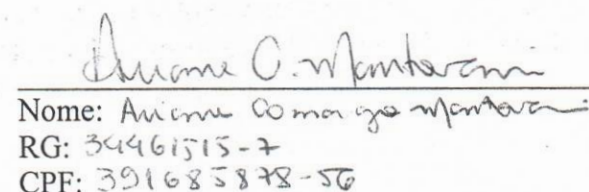 Ariane C. Mantovani
Nome: Ariane Camargo Mantovani
RG: 34461515-7
CPF: 391685878-56